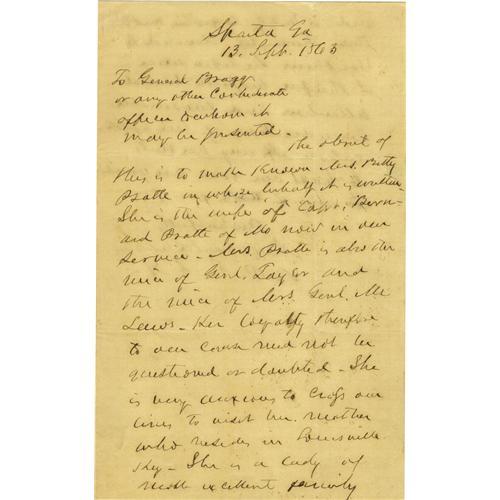 Sparta Ga
13. Sept. 1863
To General Bragg
or any other Confederate
officer to whom it
may be presented.
The object of
this is to make known Mrs. Betty
Pratte in whose behalf it is written
She is the wife of Capt. Bern-
ard Pratte of Mo now in our
Service - Mrs. Pratte is also the
niece of Genl. Taylor and
the niece of Mrs. Genl. Mc
Laws - Her loyalty therefore
to our cause need not be
questioned or doubted - She
is very anxious to cross our
lines to visit her mother
who resides in Louisville
Key - She is a lady of
most excellent family